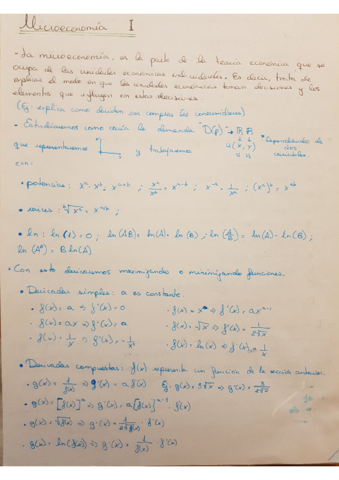 Microeconomía I
- La microeconomía, es la parte de la teoría económica que se
ocupa de las unidades económicas individuales. Es decir, trata de
explicar el modo en que las unidades económicas toman decisiones y los
elementos que influyen en estas decisiones.
(Ej: explica como deciden sus compras los consumidores)
• Estudiaremos como varía la demanda D(p): ℝ→ℝ
que representaremos y trabajaremos
• Dependiendo de
dos
variables.
con:
• potencias: xᵃ · xᵇ = xᵃ⁺ᵇ ; xᵃ/xᵇ = xᵃ⁻ᵇ ; x⁻ᵃ = 1/xᵃ ; (xᵃ)ᵇ = xᵃᵇ
• raíces:
• ln: ln(1) = 0 ; ln(AB) = ln(A) + ln(B) ; ln(A/B) = ln(A) - ln(B) ;
ln(Aᴮ) = B ln(A)
• Con esto derivaremos maximizando o minimizando funciones.
• Derivadas simples: a es constante.
· f(x) = a ⇒ f'(x) = 0 · f(x) = xᵃ ⇒ f'(x) = axᵃ⁻¹
· f(x) = ax ⇒ f'(x) = a · f(x) = √x ⇒ f'(x) = 1/2√x
· f(x) = 1/x ⇒ f'(x) = -1/x² · f(x) = ln(x) ⇒ f'(x) = 1/x
• Derivadas compuestas: f(x) representa una función de la sección anterior.
• g(x) = ⇒ g'(x) = a f'(x) Ej: g(x) = 3√x ⇒ g'(x) = 3/2√x
• g(x) = [f(x)]ᵃ ⇒ g'(x) = a[f(x)]ᵃ⁻¹ · f'(x)
• g(x) = √f(x) ⇒ g'(x) = 1/2√f(x) · f'(x)
• g(x) = ln(f(x)) ⇒ g'(x) = 1/f(x) · f'(x)